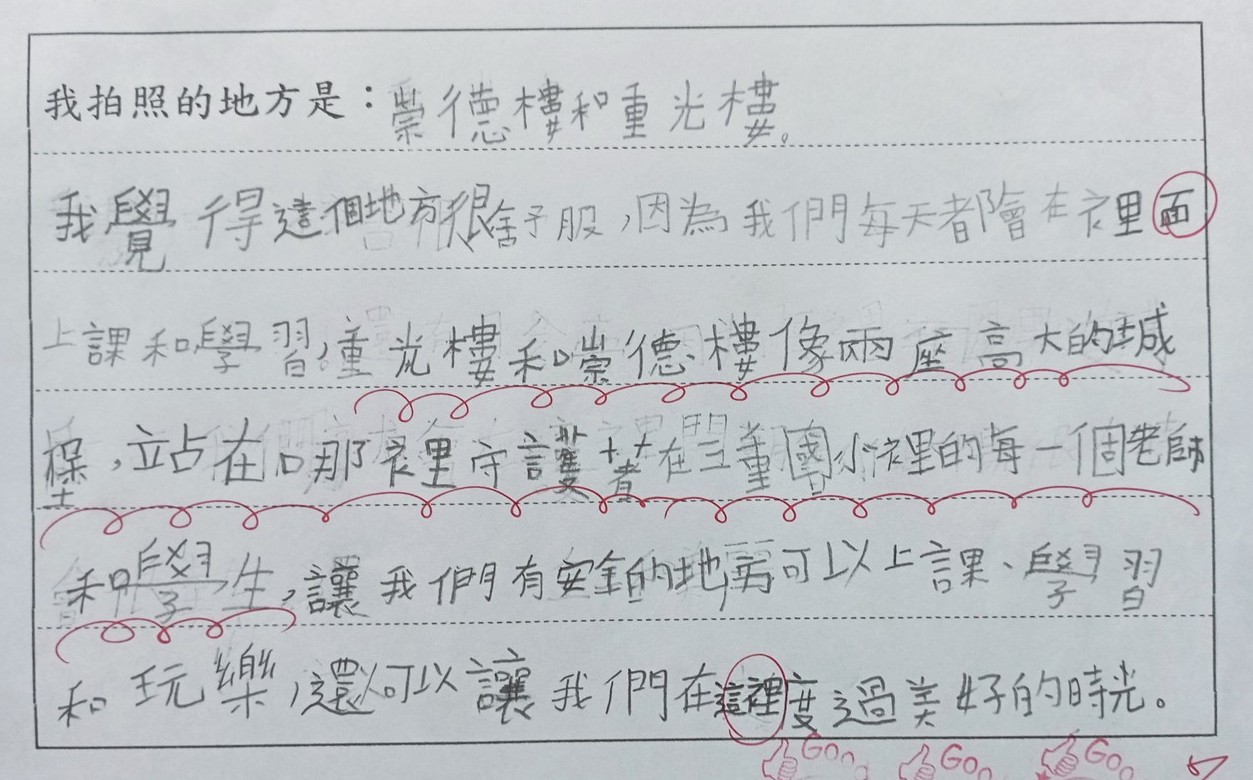 我拍照的地方是：崇德樓和重光樓。
我覺得這個地方很舒服，因為我們每天都會在裡面
上課和學習，重光樓和崇德樓像兩座高大的城
堡，立站在那裡守護著在三重國小裡的每一個老師
和學生，讓我們有安全的地方可以上課、學習
和玩樂，還可以讓我們在這裡度過美好的時光。
Good Good Good